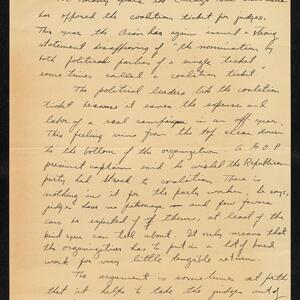 For many years the Chicago Bar Association
has opposed the coalition ticket for judges.
This year the Assn has again issued a strong
statement disapproving of "the nomination by
both political parties of a single ticket
sometimes called a coalition ticket"
The political leaders like the coalition
ticket because it saves the expense and
labor of a real campaign in an off year.
This feeling runs from the top clear down
to the bottom of the organization. A G.O.P.
precinct captain said he wished the Republican
party had stuck to coalition. There is
nothing in it for the party worker, he says,
judges have no patronage — and few favors
can be expected of them, at least of the
kind you can tell about. It only means that
the organization has to put in a lot of hard
work for very little tangible return.
The argument is sometimes set forth
that it helps to take the judges out of